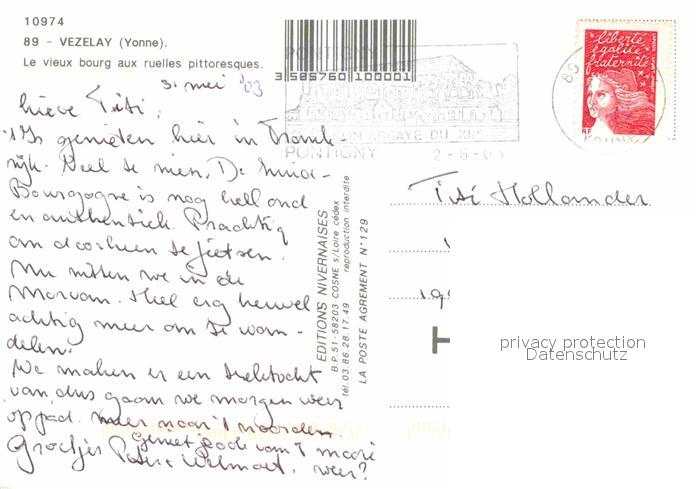 10974
89 - VEZELAY (Yonne).
Le vieux bourg aux ruelles pittoresques.
3 585760 100001
PONTIGNY
ABBAYE DU XIIe
PONTIGNY 2-6-03
liberté
égalité
fraternité
RF
31 mei '03
Lieve Titi,
't Is genieten hier in Frank-
rijk. Veel te zien. De
Bourgogne is nog heel ond
en authentiek. Prachtig
om doorheen te fietsen.
Nu zitten we in de
Morvan. Heel erg heuvel
achtig meer om te wan-
delen.
We maken er een trektocht
van dus gaan we morgen weer
op pad. meer naar 't noorden.
geniet goed van 't mooie
Groetjes Peter + weer?
Titi Hollander
EDITIONS NIVERNAISES
B.P. 51-58203 COSNE s/Loire cédex
tél. 03.86.28.17.49 reproduction interdite
LA POSTE AGREMENT N°129
privacy protection
Datenschutz